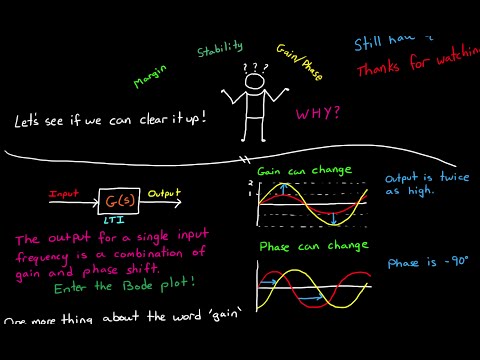 Margin
Stability
Gain/Phase
Still
Thanks for watching
? ? ?
Let's see if we can clear it up!
WHY?
Input
G(s)
Output
LTI
The output for a single input
frequency is a combination of
gain and phase shift.
Enter the Bode plot!
One more thing about the word 'gain'
Gain can change
2
1
Output is twice
as high.
Phase can change
Phase is -90°